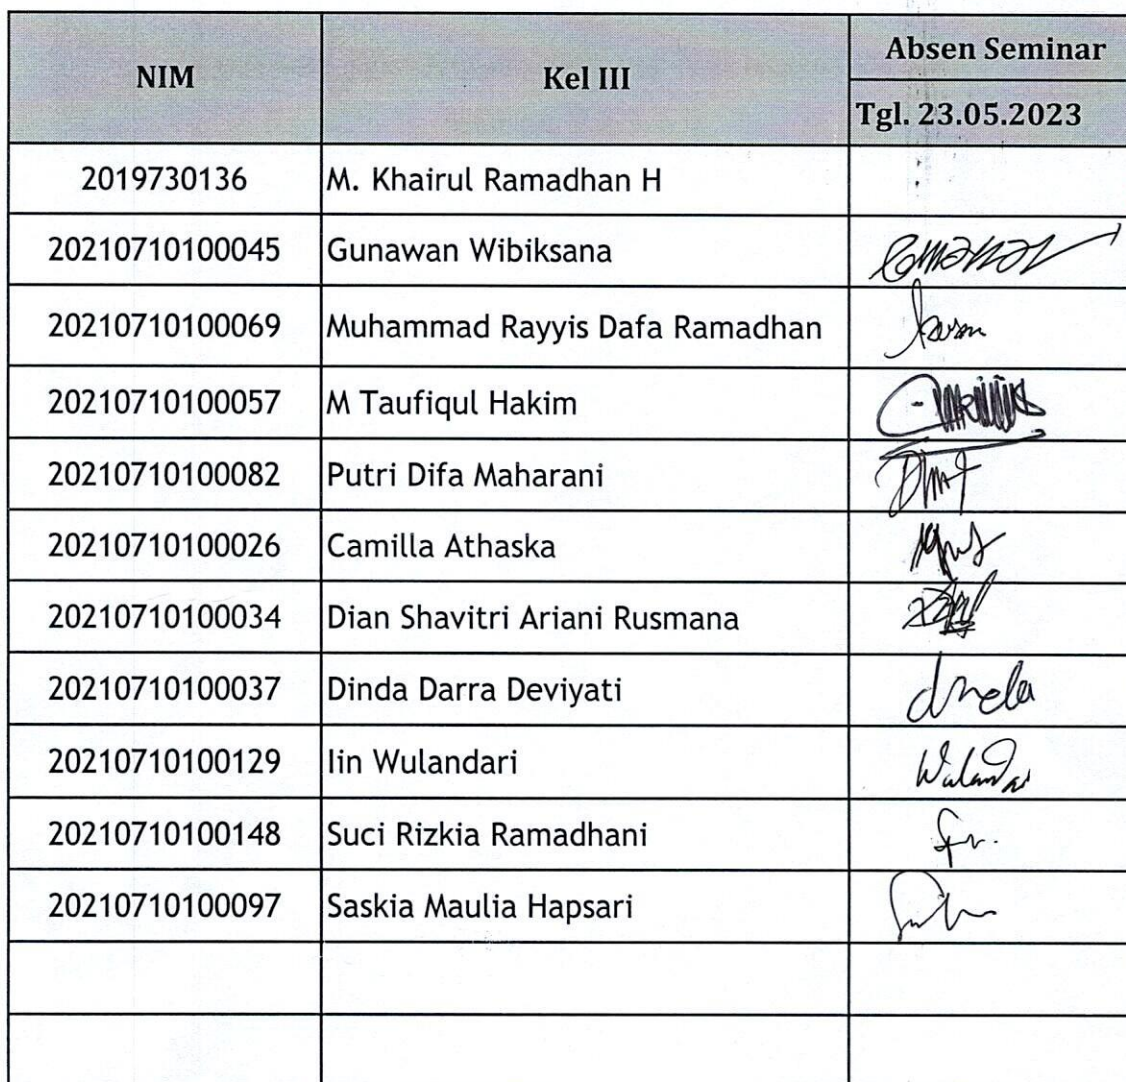 NIM Kel III Absen Seminar
Tgl. 23.05.2023
2019730136 M. Khairul Ramadhan H
20210710100045 Gunawan Wibiksana
20210710100069 Muhammad Rayyis Dafa Ramadhan
20210710100057 M Taufiqul Hakim
20210710100082 Putri Difa Maharani
20210710100026 Camilla Athaska
20210710100034 Dian Shavitri Ariani Rusmana
20210710100037 Dinda Darra Deviyati
20210710100129 Iin Wulandari
20210710100148 Suci Rizkia Ramadhani
20210710100097 Saskia Maulia Hapsari